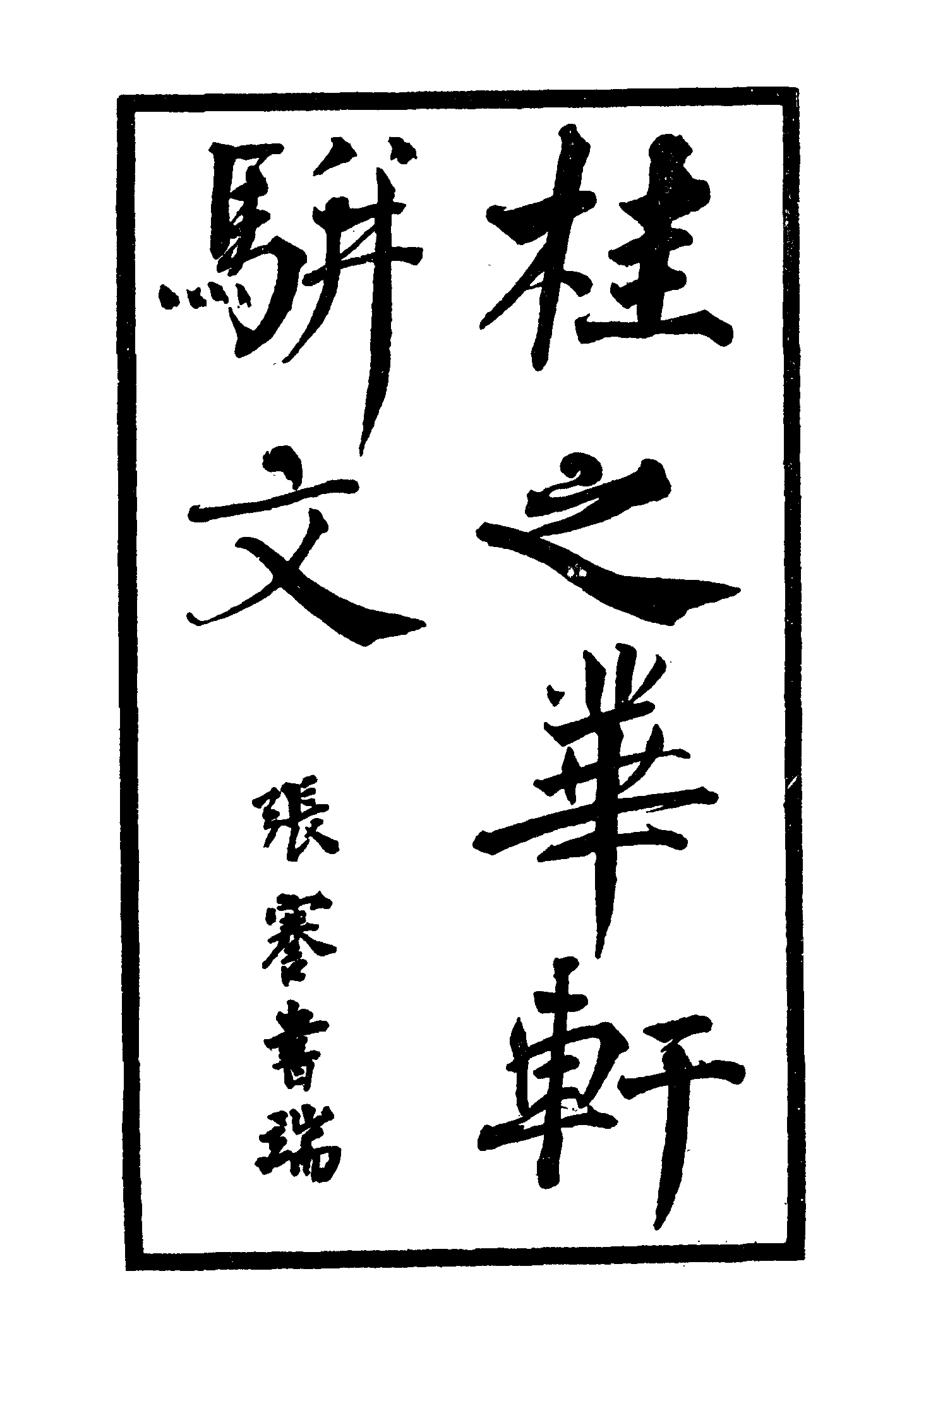 桂之華軒
駢文
張謇書耑